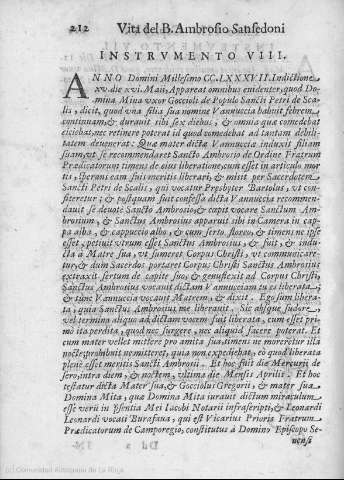 212 Vita del B. Ambrosio Sansedoni
INSTRVMENTO VIII.
ANNO Domini Millesimo CC.LXXXVII. Indictione
xv. die xvi. Maii, Appareat omnibus euidenter, quod Do-
mina Mina vxor Goccioli de Populo Sancti Petri de Sca-
lis, dicit, quod vna filia sua nomine Vannuccia habuit febrem
continuam, & durauit sibi sex diebus, & omnia quæ comedebat
eiciebat, nec retinere poterat id quod comedebat ad tantam debili-
tatem deuenerat: Quæ mater dictæ Vannuccia induxit filiam
suam, vt se recommendaret Sancto Ambrosio de Ordine Fratrum
Prædicatorum timens de eius liberatione cum esset in articulo mor
tis, sperans eam suis meritis liberari, & misit per Sacerdotem
Sancti Petri de Scalis, qui vocatur Presbyter Bartolus, vt con-
fiteretur; & postquam fuit confessa dicta Vannuccia recommen-
dauit se deuotè Sancto Ambrosio, & cœpit vocare Sanctum Am-
brosium, & Sanctus Ambrosius apparuit sibi in Camera in cap-
pa alba, & cappuccio albo, & cum serto floreo, & timens ne ipse
esset, petiuit vtrum esset Sanctus Ambrosius, & fuit, & indu-
cta à Matre sua, vt sumeret Corpus Christi, vt communicare-
tur, & dum Sacerdos portaret Corpus Christi Sanctus Ambrosius
extraxit sertum de capite suo, & genuflexit ad Corpus Christi,
Sanctus Ambrosius vocauit dictam Vannucciam tu es liberata,
& tunc Vannuccia vocauit Matrem, & dixit. Ego sum libera-
ta, quia Sanctus Ambrosius me liberauit. Sic absque sudore,
vel termino aliquo ad dictam vocem fuit liberata, cum esset pri-
mò ita perdita, quod nec surgere, nec aliquid facere poterat. Et
cum mater vellet mittere pro amita sua, timens ne moreretur illa
nocte prohibuit ne mitteret, quia non expediebat, eò quod liberata
plenè esset meritis Sancti Ambrosii. Et hoc fuit die Mercurij de
sero, intra diem, & noctem, vltima die Mensis Aprilis. Et hoc
testatur dicta Mater sua, & Gocciolus Gregorii, & mater sua
Domina Mita, qua Domina Mita iurauit dictum miraculum
esse verũ in Psentia Mei Iacobi Notarii infrascripti, & Leonardi
Leonardi vocati Burafaua, qui est Vicarius Prioris Fratrum
Prædicatorum de Camporegio, constitutus à Domino Episcopo Se-
uensi
Dd 2 IN-
(c) Comunidad Autónoma de La Rioja